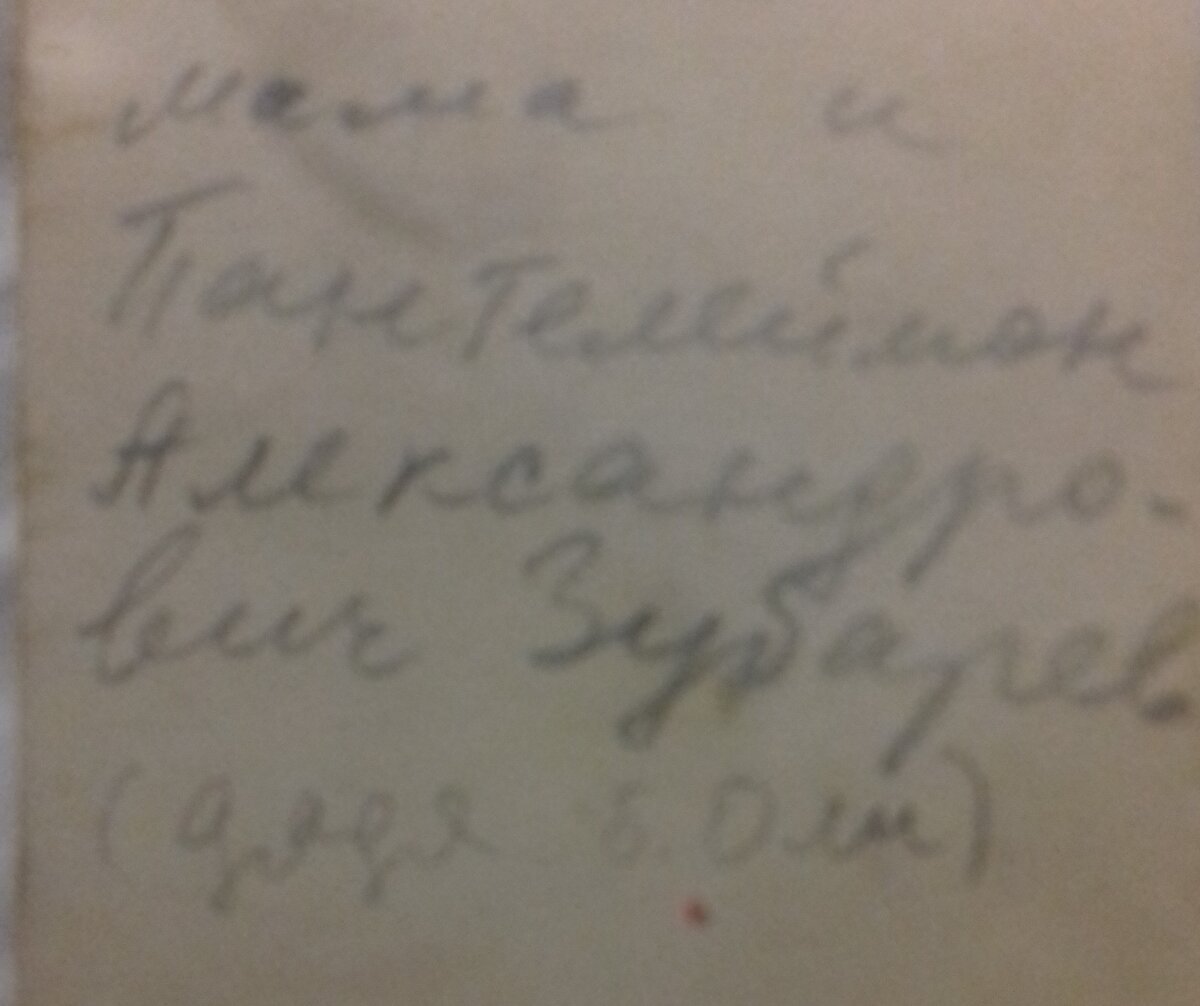 мама и
Пантелеймон
Александро-
вич Зубарев.
(дядя т. Оли)